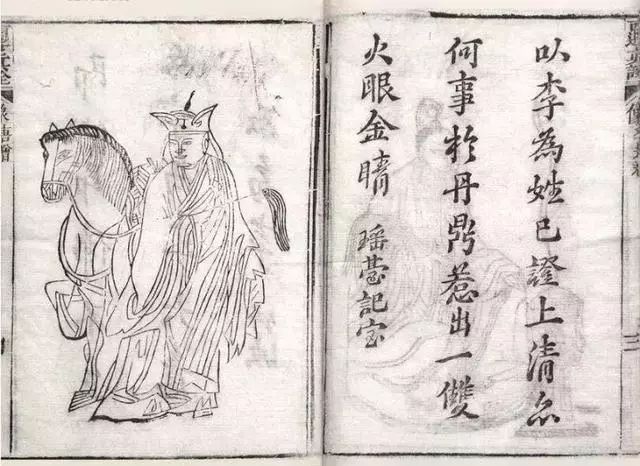 以李為姓已證上清尔
何事於丹鼎惹出一雙
火眼金睛 瑶臺記室